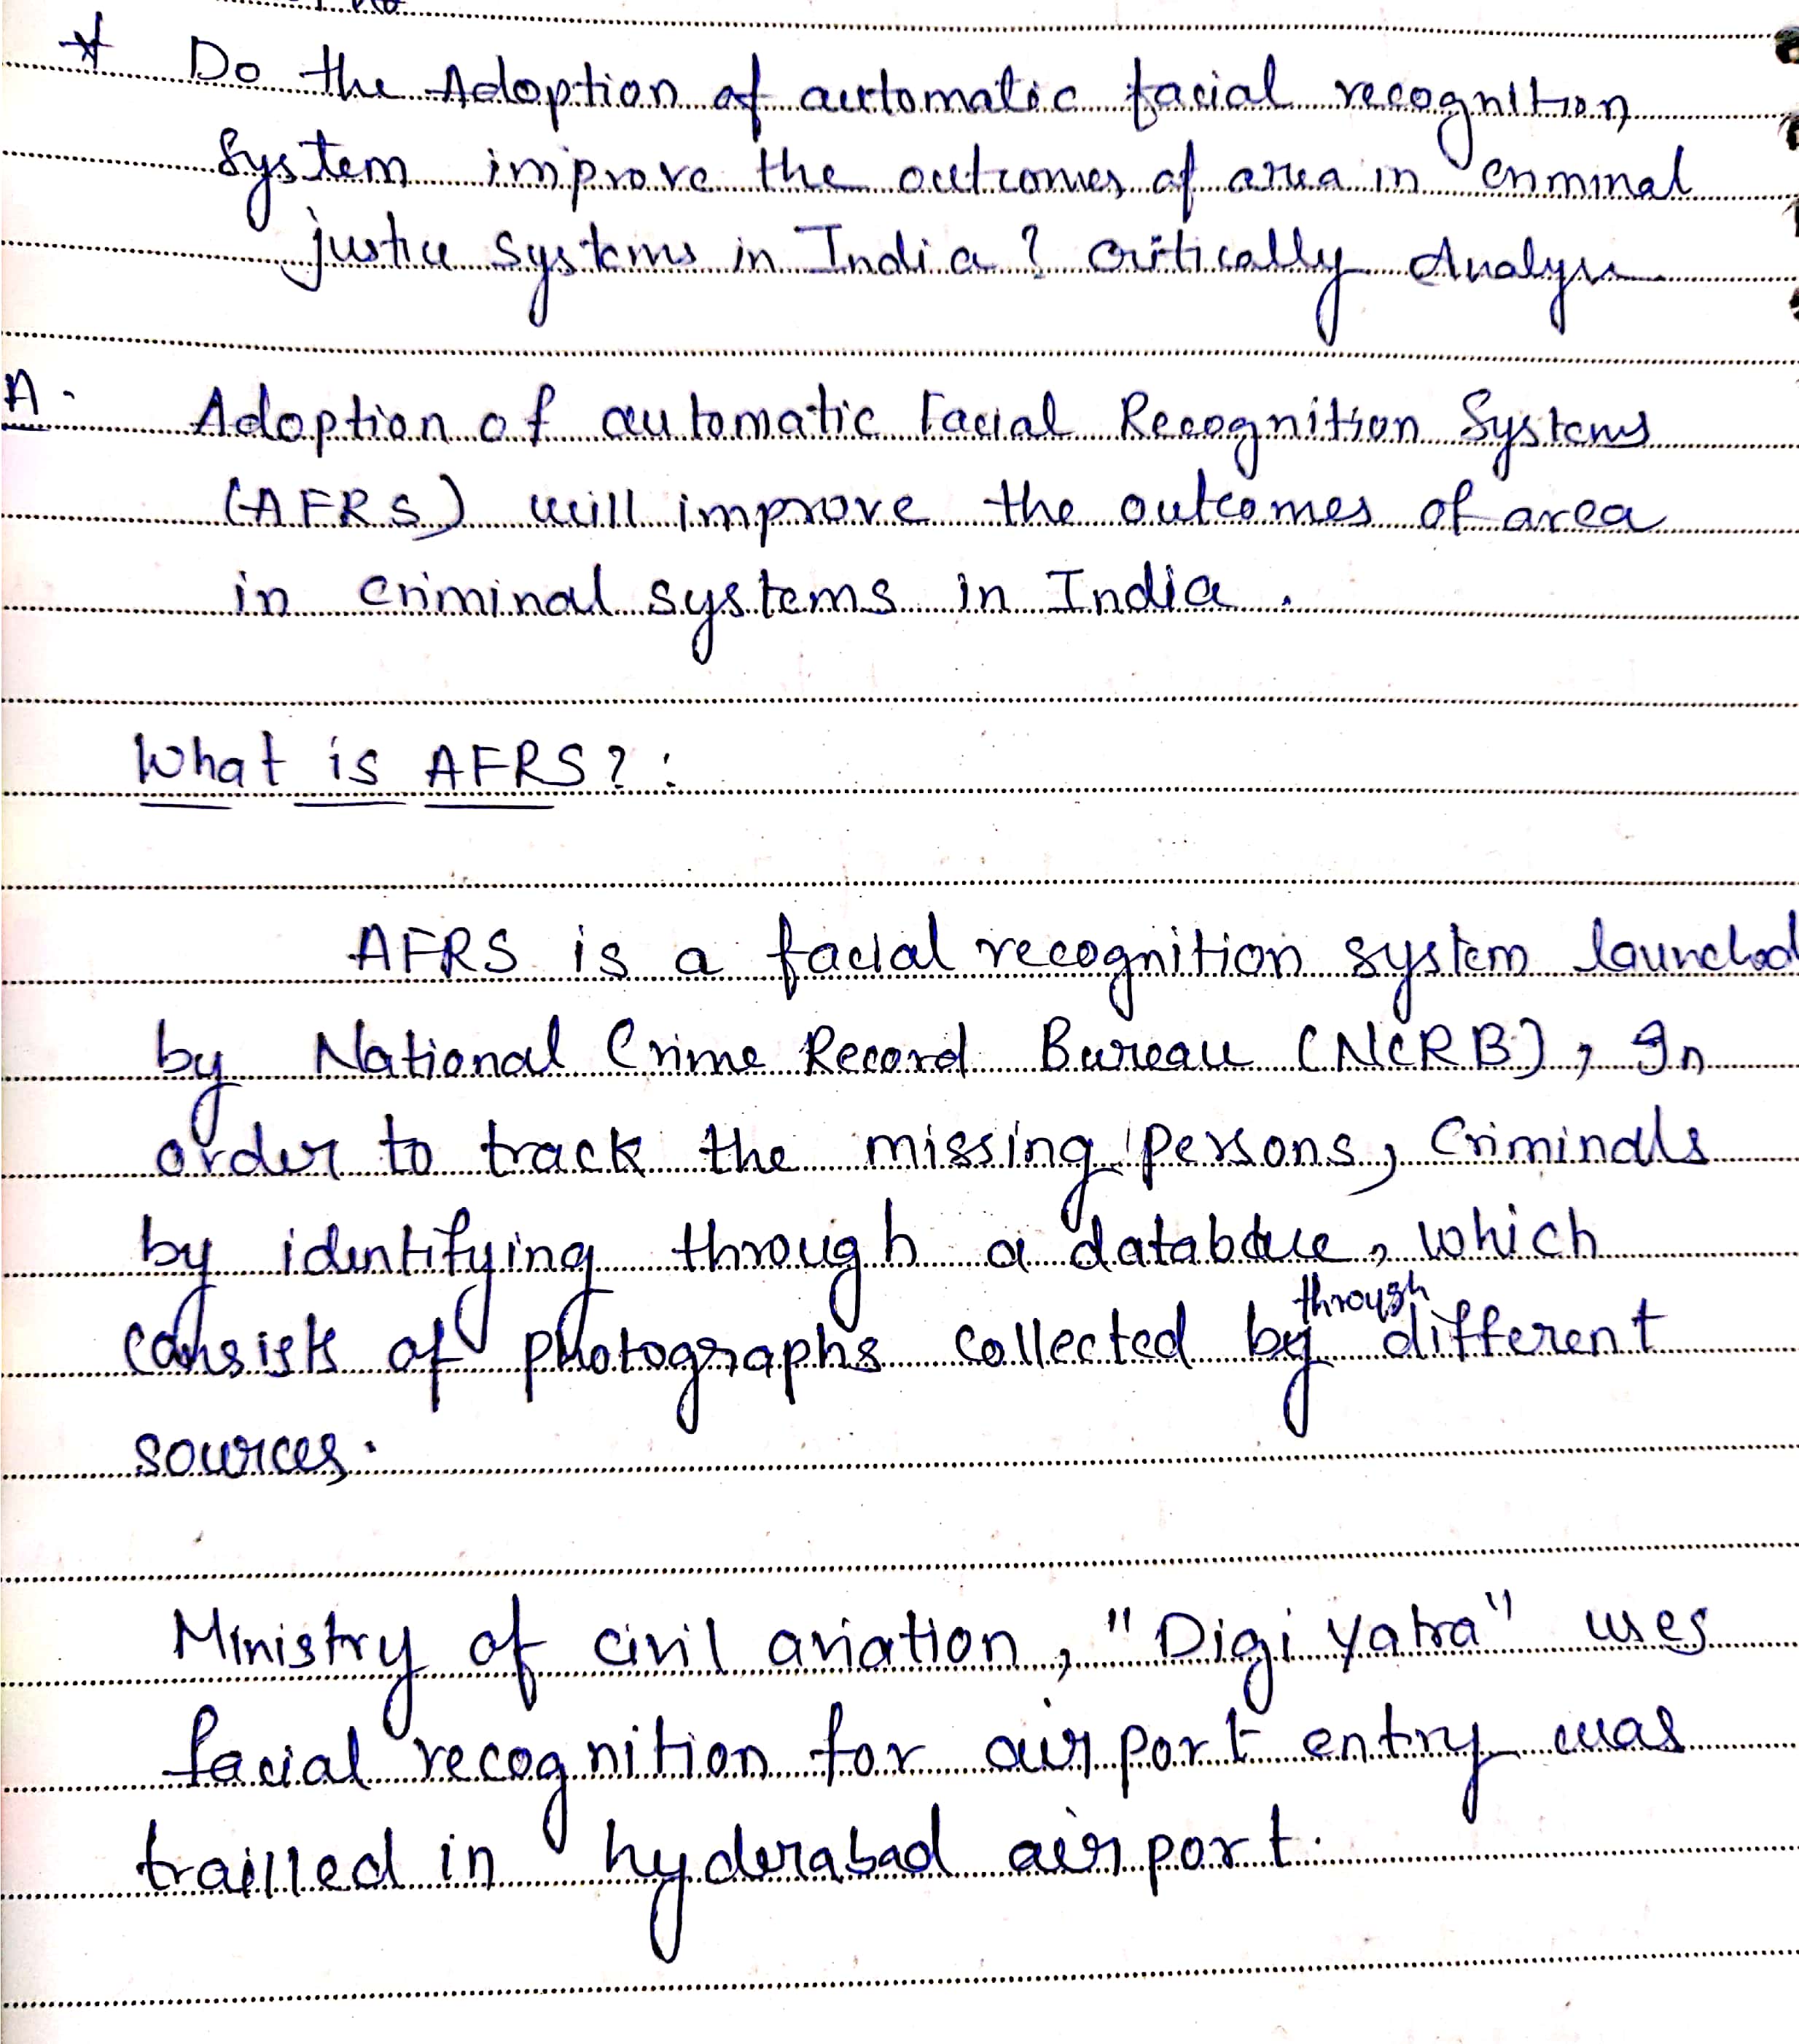 * Do the Adoption of automatic facial recognition
System improve the outcomes of area in criminal
justice systems in India? critically Analyse
A. Adoption of automatic Facial Recognition Systems
(AFRS) will improve the outcomes of area
in criminal systems in India.
What is AFRS? :
AFRS is a facial recognition system launched
by National Crime Record Bureau (NCRB), In
order to track the missing persons, Criminals
by identifying through a database, which
consists of photographs collected by through different
sources.
Ministry of civil aviation, "Digi yatra" uses
facial recognition for airport entry was
trailled in hyderabad airport.